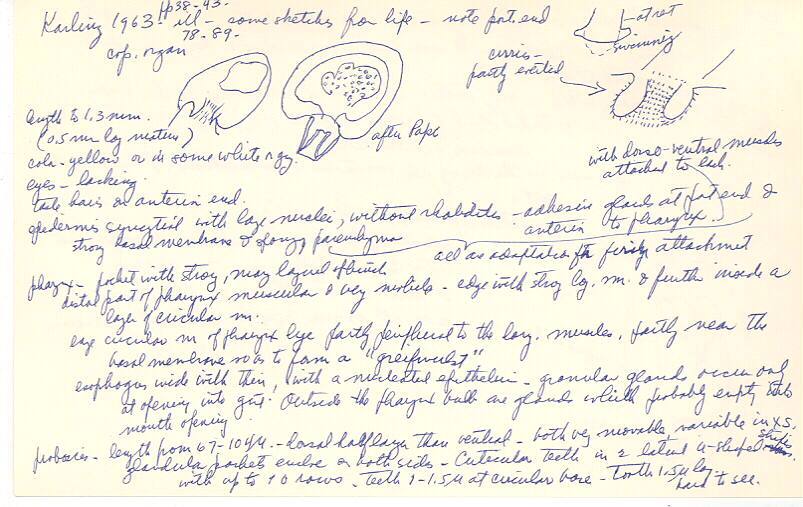 Karling 1963 - ill - some sketches from life - note post. end
pp 38-43.
78-89-
cop. organ
at rest
swimming
cirrus-
partly everted
after Pape
with dorso-ventral muscles
attached to each.
length to 1.3 mm.
(0.5 mm lag mature)
color - yellow or in some white or gy.
eyes - lacking.
tactile hairs on anterior end.
epidermis syncytial with large nuclei, without rhabdites - adhesive glands at post end &
anterior to pharynx.
strong basal membrane & spongy parenchyma
all as adaptation for firm attachment
pharynx - pocket with strong, many layered
distal part of pharynx muscular & very mobile - edge with strong lg. m. & further inside a
layer of circular m.
circular m of pharynx lye partly peripheral to the long. muscles, partly near the
basal membrane so as to form a "greifwulst"
esophagus wide with thin, with a nucleated epithelium - granular glands occur only
at opening into gut. Outside the pharynx bulb are glands which probably empty into
mouth opening.
proboscis - length from 67-104µ - dorsal half larger than ventral - both very movable variable in XS.
glandular pockets on both sides - Cuticular teeth in 2 lateral u-shaped strips
with up to 10 rows - teeth 1-1.5µ at circular base - tooth 1.5µ long
hard to see.